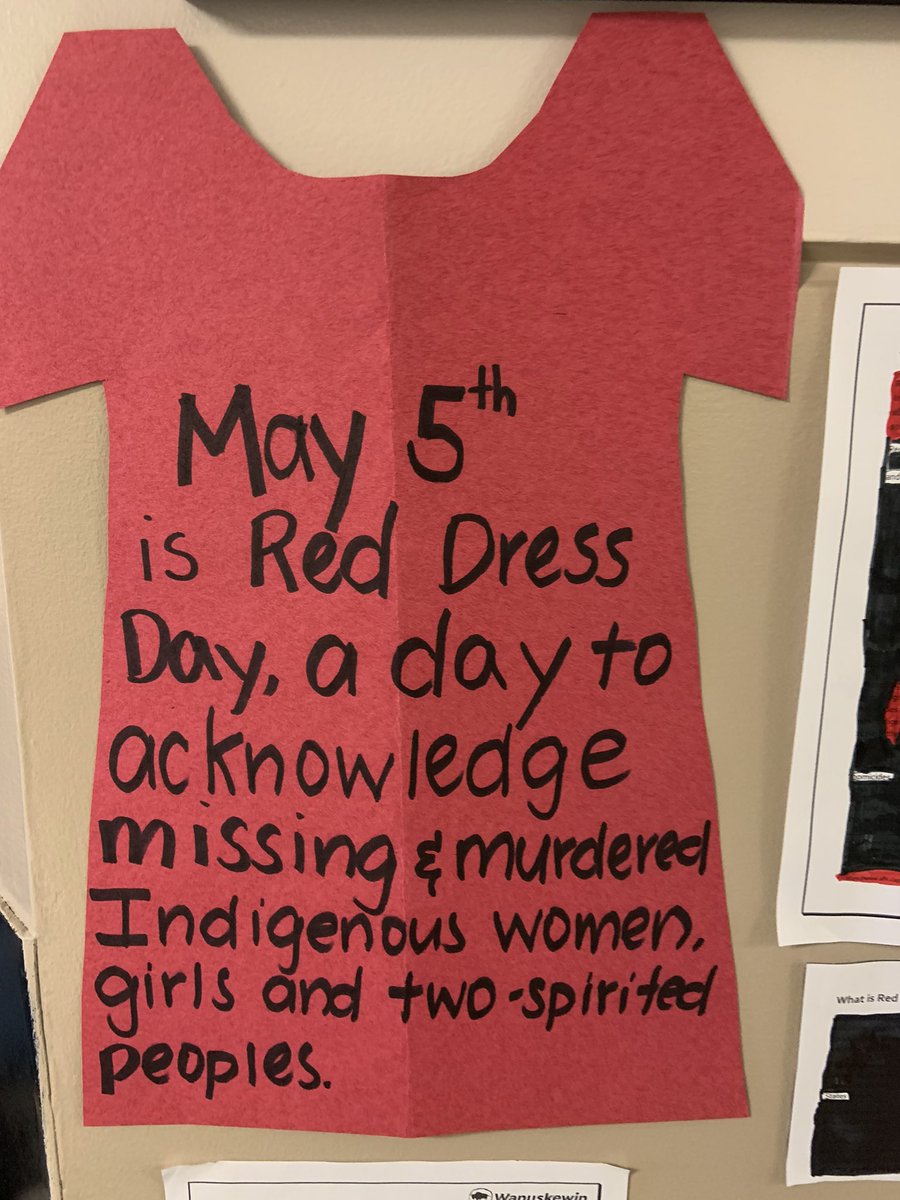 May 5th
is Red Dress
Day, a day to
acknowledge
missing & murdered
Indigenous women,
girls and two-spirited
peoples.
What is Red
States
Wanuskewin